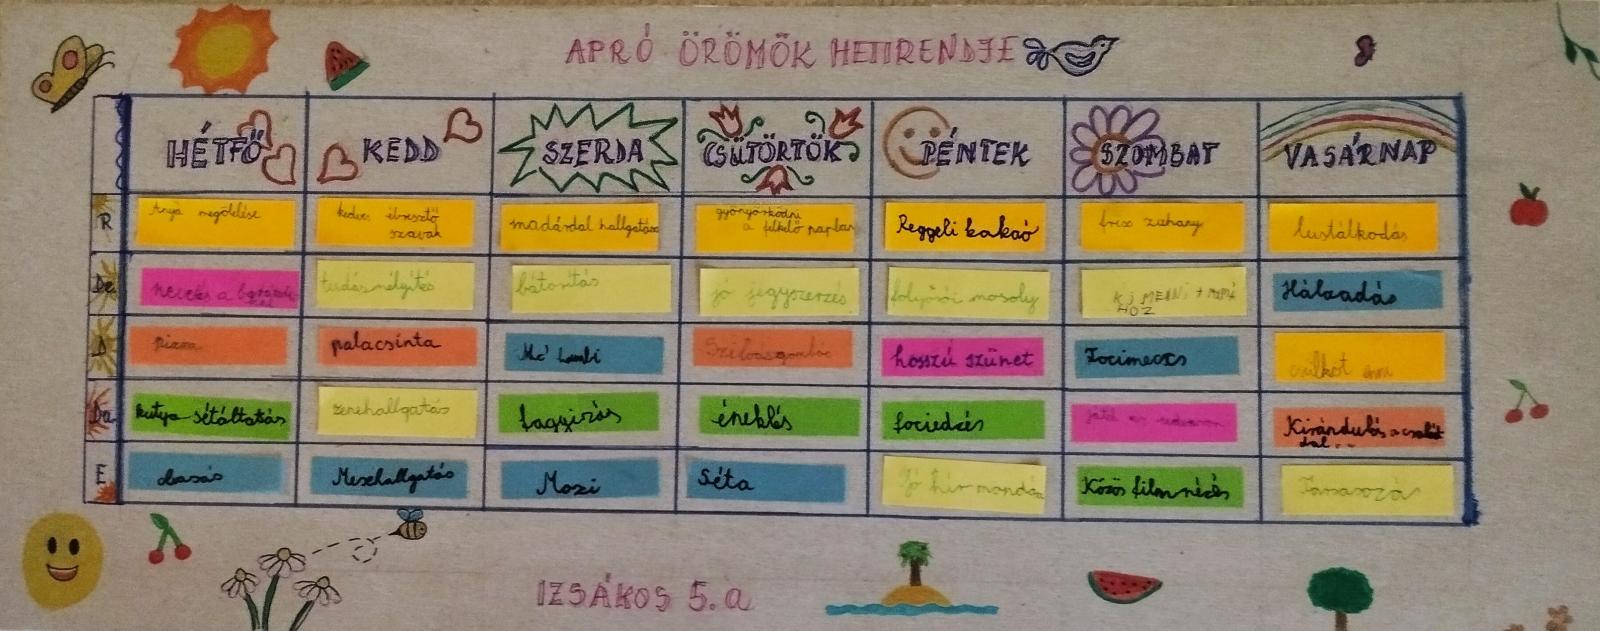 APRÓ ÖRÖMÖK HETIRENDJE
HÉTFŐ KEDD SZERDA CSÜTÖRTÖK PÉNTEK SZOMBAT VASÁRNAP
R
Anya megölelése
kedves ébresztő
szavak
madárdal hallgatása
gyönyörködni
a felkelő napban
Reggeli kakaó
friss zuhany
lustálkodás
De
nevetés a
tudásmélyítés
bátorítás
jó jegyszerzés
folyosói mosoly
MENNI + MAMÁ
HOZ
Hálaadás
D
pizza
palacsinta
Szilvásgombóc
hosszú szünet
Focimeccs
enni
Du
kutya sétáltatás
zenehallgatás
fagyizás
éneklés
fociedzés
Kirándulás a család
dal...
E
Mesehallgatás
Mozi
Séta
Jó hír mondás
Közös filmnézés
Társasozás
IZSÁKOS 5. a